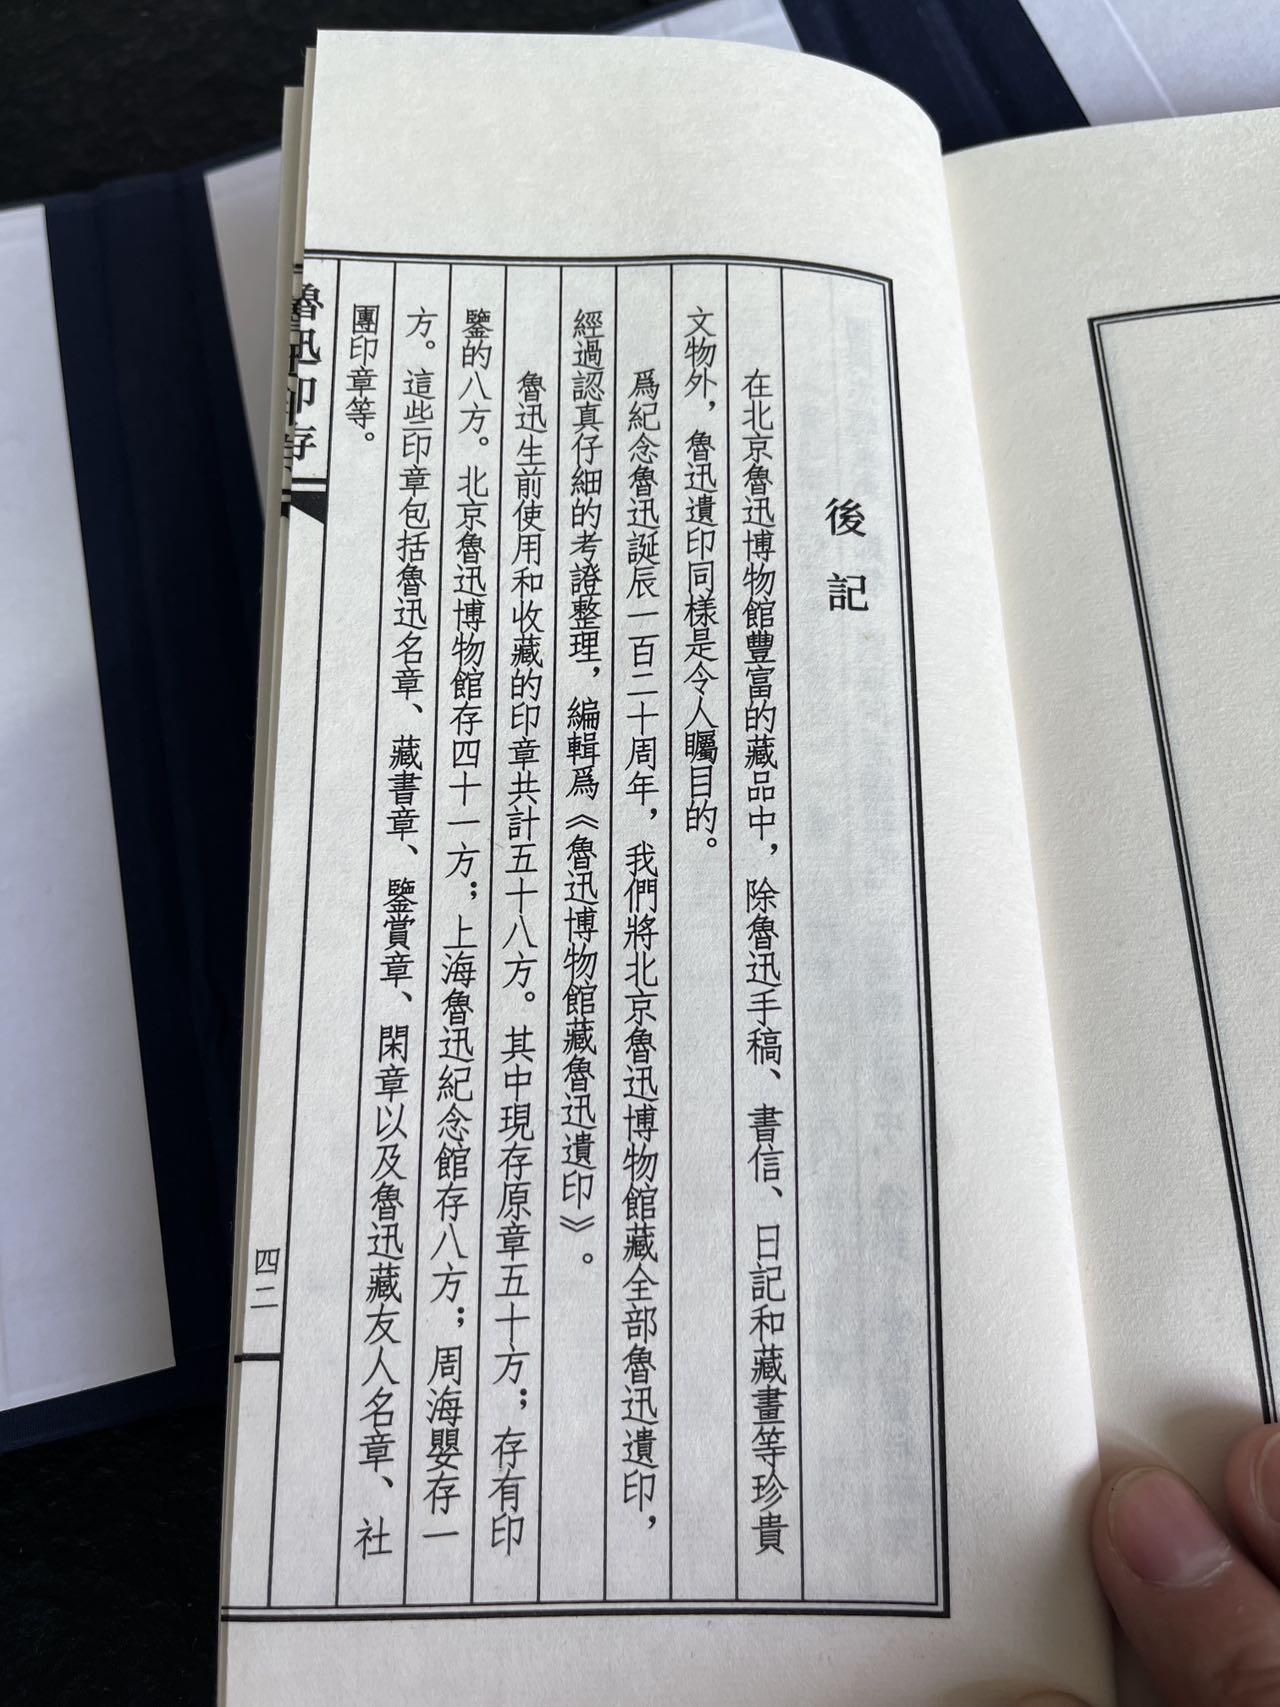 後記
在北京魯迅博物館豐富的藏品中，除魯迅手稿、書信、日記和藏畫等珍貴
文物外，魯迅遺印同樣是令人矚目的。
爲紀念魯迅誕辰一百二十周年，我們將北京魯迅博物館藏全部魯迅遺印，
經過認真仔細的考證整理，編輯爲《魯迅博物館藏魯迅遺印》。
魯迅生前使用和收藏的印章共計五十八方。其中現存原章五十方；存有印
鑒的八方。北京魯迅博物館存四十一方；上海魯迅紀念館存八方；周海嬰存一
方。這些印章包括魯迅名章、藏書章、鑒賞章、閑章以及魯迅藏友人名章、社
團印章等。
魯迅印存
四二